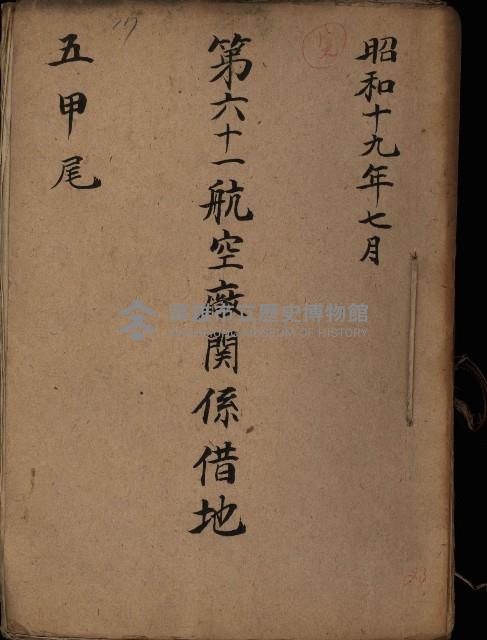 昭和十九年七月
第六十一航空廠関係借地
五甲尾
高雄市立歷史博物館
MUSEUM OF HISTORY